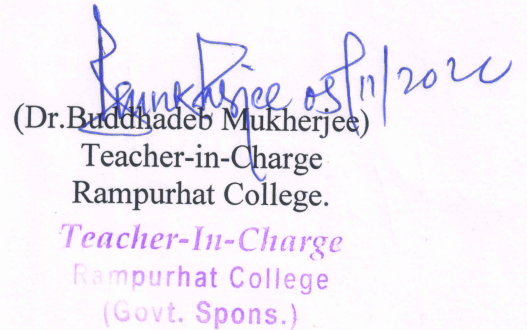 BMukherjee 05/11/2020
(Dr.Buddhadeb Mukherjee)
Teacher-in-Charge
Rampurhat College.
Teacher-In-Charge
Rampurhat College
(Govt. Spons.)